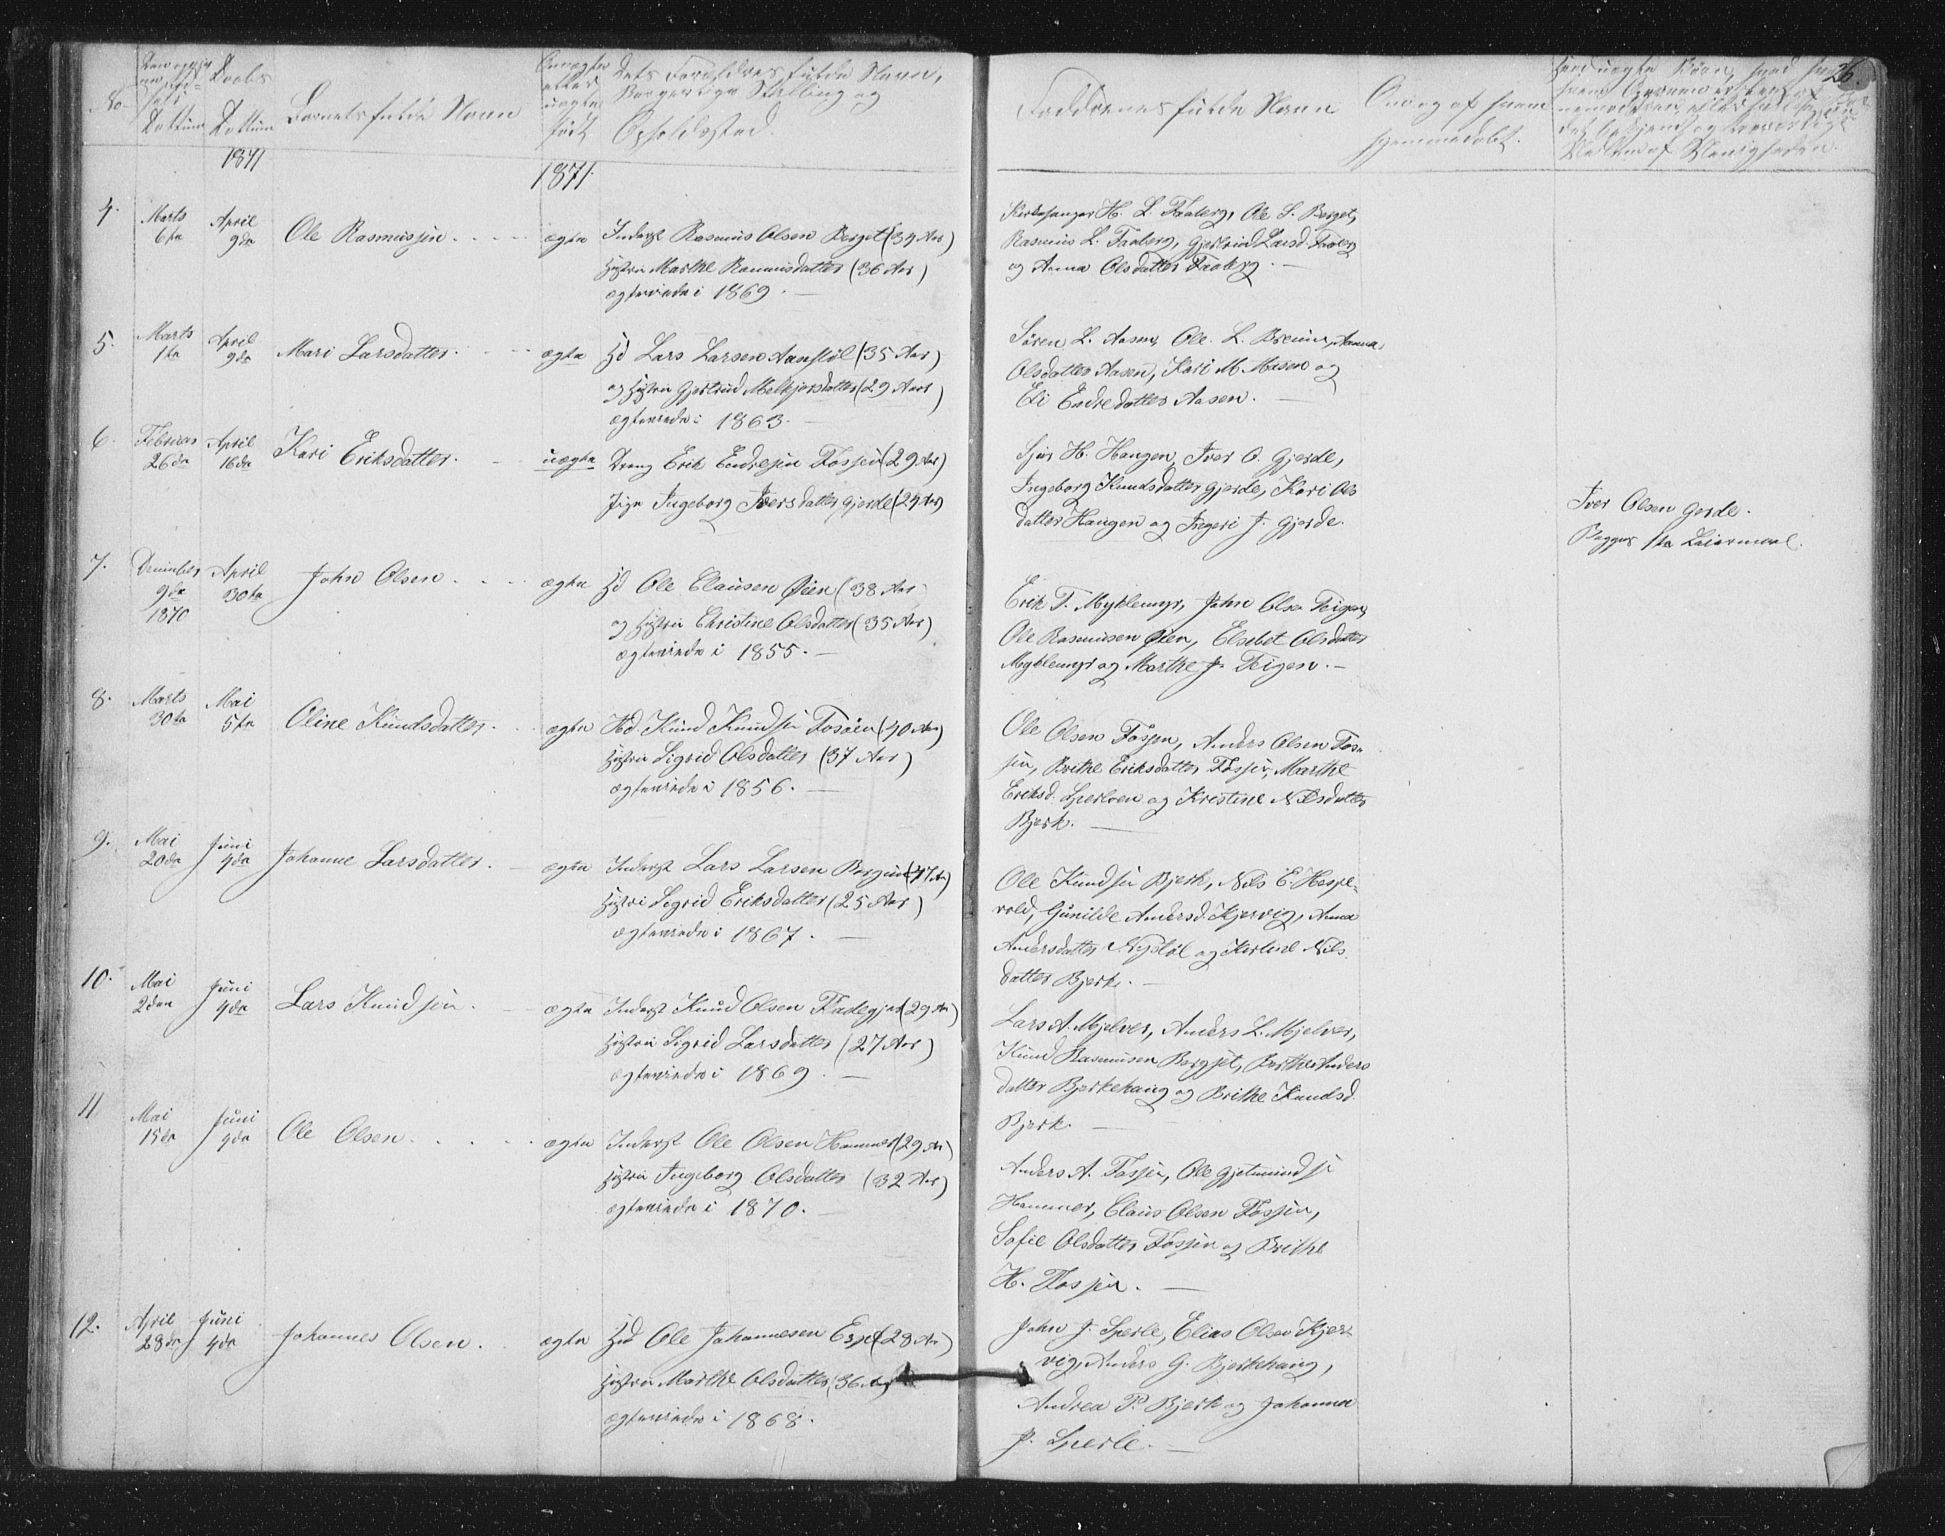 26.
No
Daabs
Dattum
Dattum
Barnets fulde Navn
ægte
eller
uægte
født
Dets Forældres fulde Navn,
Borgerlige Stilling og
Opholdssted.
Faddernes fulde Navn
Om og af hvem
hjemmedøbt.
1871
1871.
4.
Marts
6te
April
9de
Ole Rasmussen
ægte
Inderst Rasmus Olsen Berget (34 Aar)
Hustru Marthe Rasmusdatter (36 Aar)
ægteviede i 1869.
Kirkesanger H. L. Faaberg, Ole S. Berget,
Rasmus L. Faaberg, Gjertrud Larsd. Faaberg
og Anna Olsdatter Faaberg.
5.
Marts
1te
April
9de
Mari Larsdatter.
ægte
Hd Lars Larsen Aanstøl (35 Aar)
og Hustru Gjertrud Melkjorsdatter (29 Aar)
ægteviede i 1863.
Søren L. Aasen, Ole L. Bremer, Anna
Olsdatter Aasen, Kari M. Aasen og
Eli Endredatter Aasen.
6.
Februar
26de
April
16de
Kari Eriksdatter.
uægte
Dreng Erik Endresen Fossen (29 Aar)
Pige Ingeborg Iversdatter Gjerde (24 Aar)
H. Haugen, Iver O. Gjerde,
Ingeborg Knudsdatter Gjerde, Kari Ols
datter Haugen og Ingeri J. Gjerde.
Iver Olsen Gerde.
Begges 1te Leiermaal.
7.
December
9de
1870
April
30te
John Olsen
ægte
Hd Ole Clausen Øien (38 Aar)
og Hustru Christine Olsdatter (35 Aar)
ægteviede i 1855.
Erik T. Myklemyr, John Olsen Teigen,
Ole Rasmussen Øien, Elsebet Olsdatter
Myklemyr og Marthe J. Teigen.
8.
Marts
30te
Mai
5te
Oline Knudsdatter.
ægte
Hd. Knud Knudsen Fosøen (40 Aar)
Hustru Sigrid Olsdatter (37 Aar)
ægteviede i 1856.
Ole Olsen Fossen, Anders Olsen Fos-
sen, Brithe Eriksdatter Fossen, Marthe
Eriksd. Sperleen og Kristine Nilsdatter
Bjerk.
9.
Mai
20de
Juni
4de
Johanne Larsdatter.
ægte
Inderst Lars Larsen
Hustru Sigrid Eriksdatter (25 Aar)
ægteviede i 1867.
Ole Knudsen Bjerk, Nils E. Hesple-
vold, Gunilde Andersd. Kjervig, Anna
Andersdatter Nystøl og Nils
datter Bjerk.
10.
Mai
2den
Juni
4de
Lars Knudsen.
ægte
Inderst Knud Olsen (29 Aar)
Hustru Sigrid Larsdatter (27 Aar)
ægteviede i 1869.
Lars A. Mjelver, Anders L. Mjelver,
Knud Rasmussen Bergset, Berthe Anders
datter Bjerkehaug og Brithe Knudsd.
Bjerk.
11
Mai
15de
Juni
4de
Ole Olsen
ægte
Inderst Ole Olsen Hammer (29 Aar)
Hustru Ingeborg Olsdatter (32 Aar)
ægteviede i 1870.
Anders A. Fossen, Ole Gjetmundsen
Hammer, Claus Olsen Fossen,
Sofie Olsdatter Fossen og Brithe
H. Fossen.
12.
April
28de
Juni
4de
Johannes Olsen.
ægte
Hd Ole Johannesen Espe (28 Aar)
Hustru Marthe Olsdatter (36 Aar)
ægteviede i 1868.
John J. Sperle, Elias Olsen Kjer-
vig, Anders G. Bjerkehaug,
Andrea P. Bjerk og Johanna
J. Sperle.